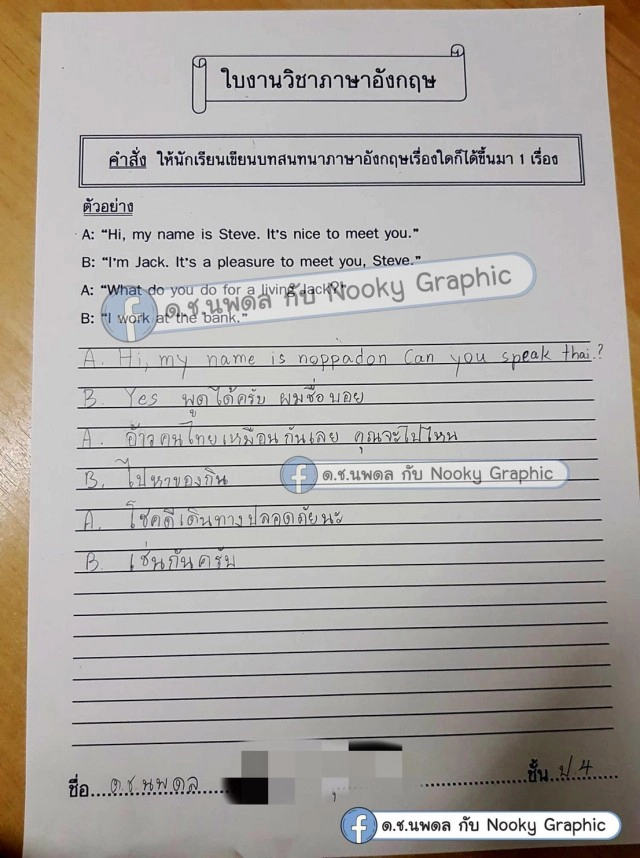 ใบงานวิชาภาษาอังกฤษ
คำสั่ง ให้นักเรียนเขียนบทสนทนาภาษาอังกฤษเรื่องใดก็ได้ขึ้นมา 1 เรื่อง
ตัวอย่าง
A: “Hi, my name is Steve. It's nice to meet you.”
B: “I'm Jack. It's a pleasure to meet you, Steve.”
A: “What do you do for a living Jack?”
B: “I work at the bank.”
ด.ช.นพดล กับ Nooky Graphic
A. Hi, my name is noppadon Can you speak thai.?
B. Yes พูดได้ครับ ผมชื่อบอย
A. อ้าวคนไทยเหมือนกันเลย คุณจะไปไหน
B. ไปหาของกิน
ด.ช.นพดล กับ Nooky Graphic
A. โชคดีเดินทางปลอดภัยนะ
B. เช่นกันครับ
ชื่อ.....ด.ช.นพดล..........ชั้น..ป.4......
ด.ช.นพดล กับ Nooky Graphic